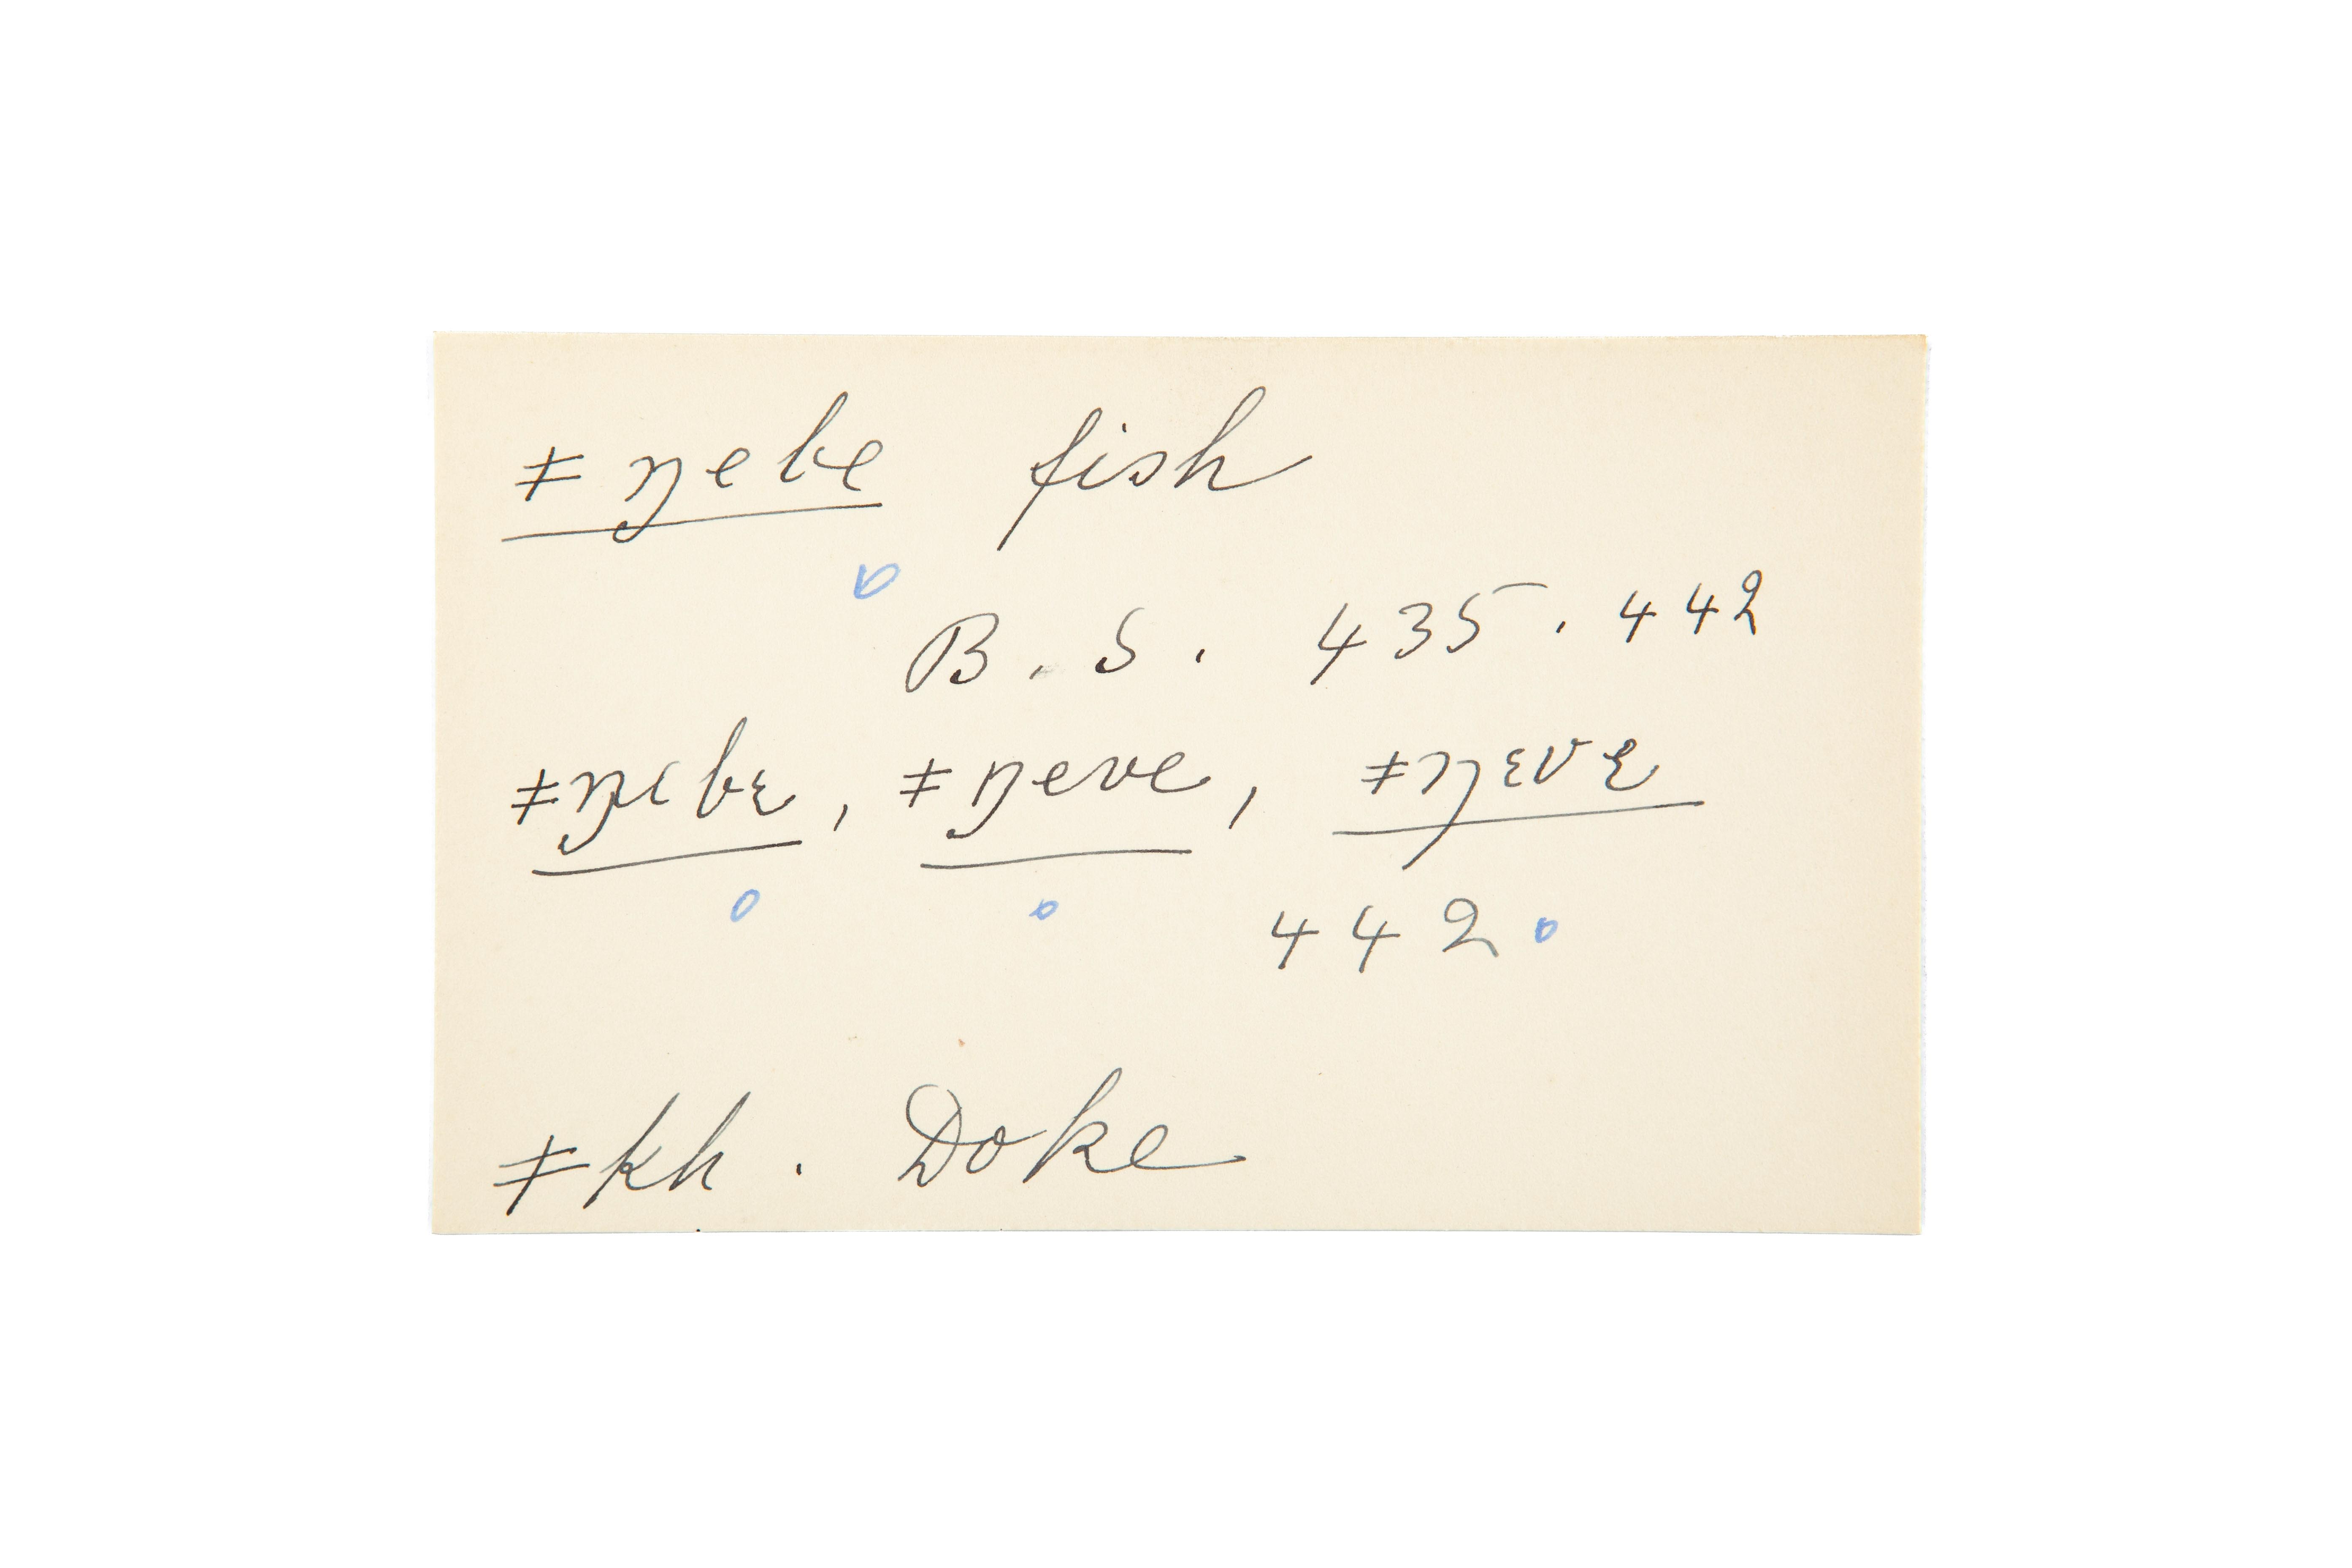 ǂŋebe fish
B. S. 435. 442
ǂŋɛbɛ, ǂŋeve, ǂŋɛvɛ
442
ǂkh. Doke